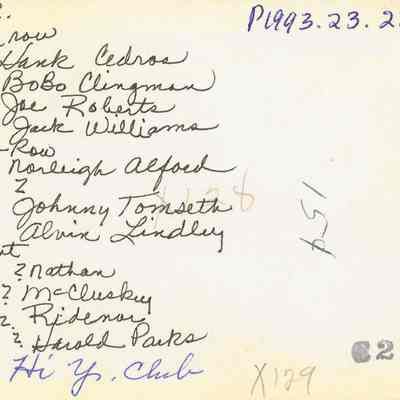 P1993.23.2
row
Hank Cedros
BoBo Clingman
Joe Roberts
Jack Williams
-Row
Norleigh Alford
?
X128
Johnny Tomseth
Alvin Lindley
154
nt
? Nathan
? McCluskey
? Ridenor
? Harold Parks
C2
Hi Y. Club
X129